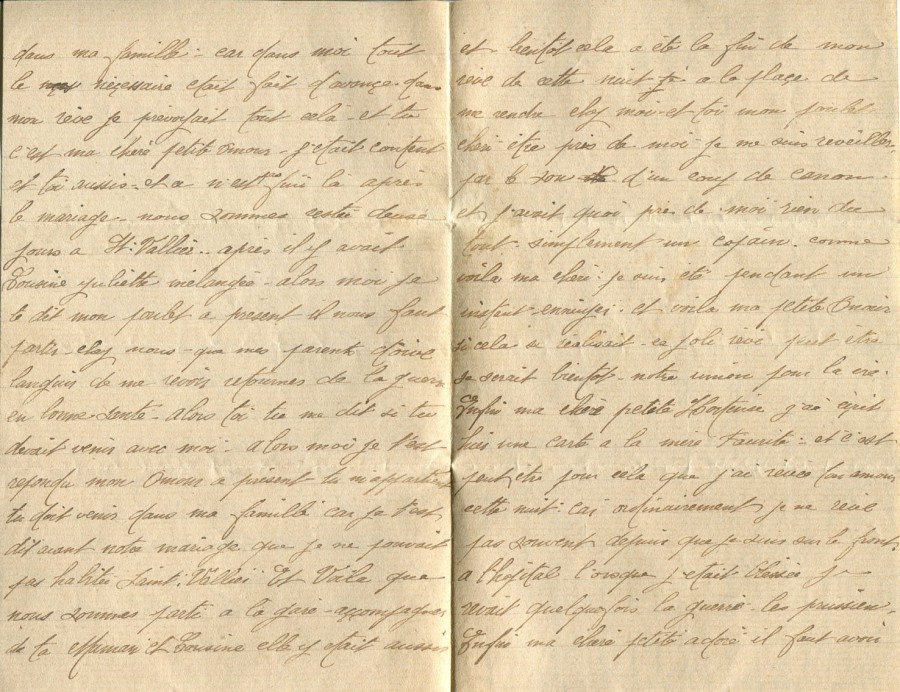 dans ma famille. car dans moi tout
le nécessaire etait fait d'avance. dans
mon rêve je prévoyait tout cela. et tu
c'est ma chère petite Amour. j'etait content
et toi aussis. et ce n'est pas fini là après
le mariage. nous sommes restée deux
jours a St. Vallier. après il y avait
Cousine Juliette mélangée. alors moi je
te dit mon poulet a présent il nous faut
partir chez nous. que mes parents doive
languir de me revoir retournes de la guerre
en bonne Santé. alors toi tu me dit si tu
devait venir avec moi. alors moi je t'est
repondu mon Amour a présent tu m'appartient
tu doit venir dans ma famille car je t'est
dit avant notre mariage que je ne pouvait
pas habiter Saint. Vallier Et Voila que
nous sommes partie a la gare. accompagner
de ta Maman Et Cousine elle y etait aussis
et bientôt cela a été la fin de mon
rêve de cette nuit a la place de
me rendre chez moi et toi mon poulet
cheri être près de moi je me suis reveiller,
par le son d'un coup de canon.
et j'avait quoi près de moi rien du
tout. simplement un copain. comme
voila ma chère. je suis été pendant un
instant ennuyer. et voila ma petite Amour
si cela se réalisait. ce joli reve peut être
se serait bientôt. notre union pour la vie.
Enfin ma chère petite Hortense j'ai écrit
hier une carte a la mère Faurite. et c'est
peut être pour cela que j'ai rêvée ton amour
cette nuit. car ordinairement je ne reve
pas souvent depuis que je suis sur le front,
a l'hôpital lorsque j'etait blessée je
revait quelquefois la guerre. les prussien.
Enfin ma chère petite adoré il faut avoir